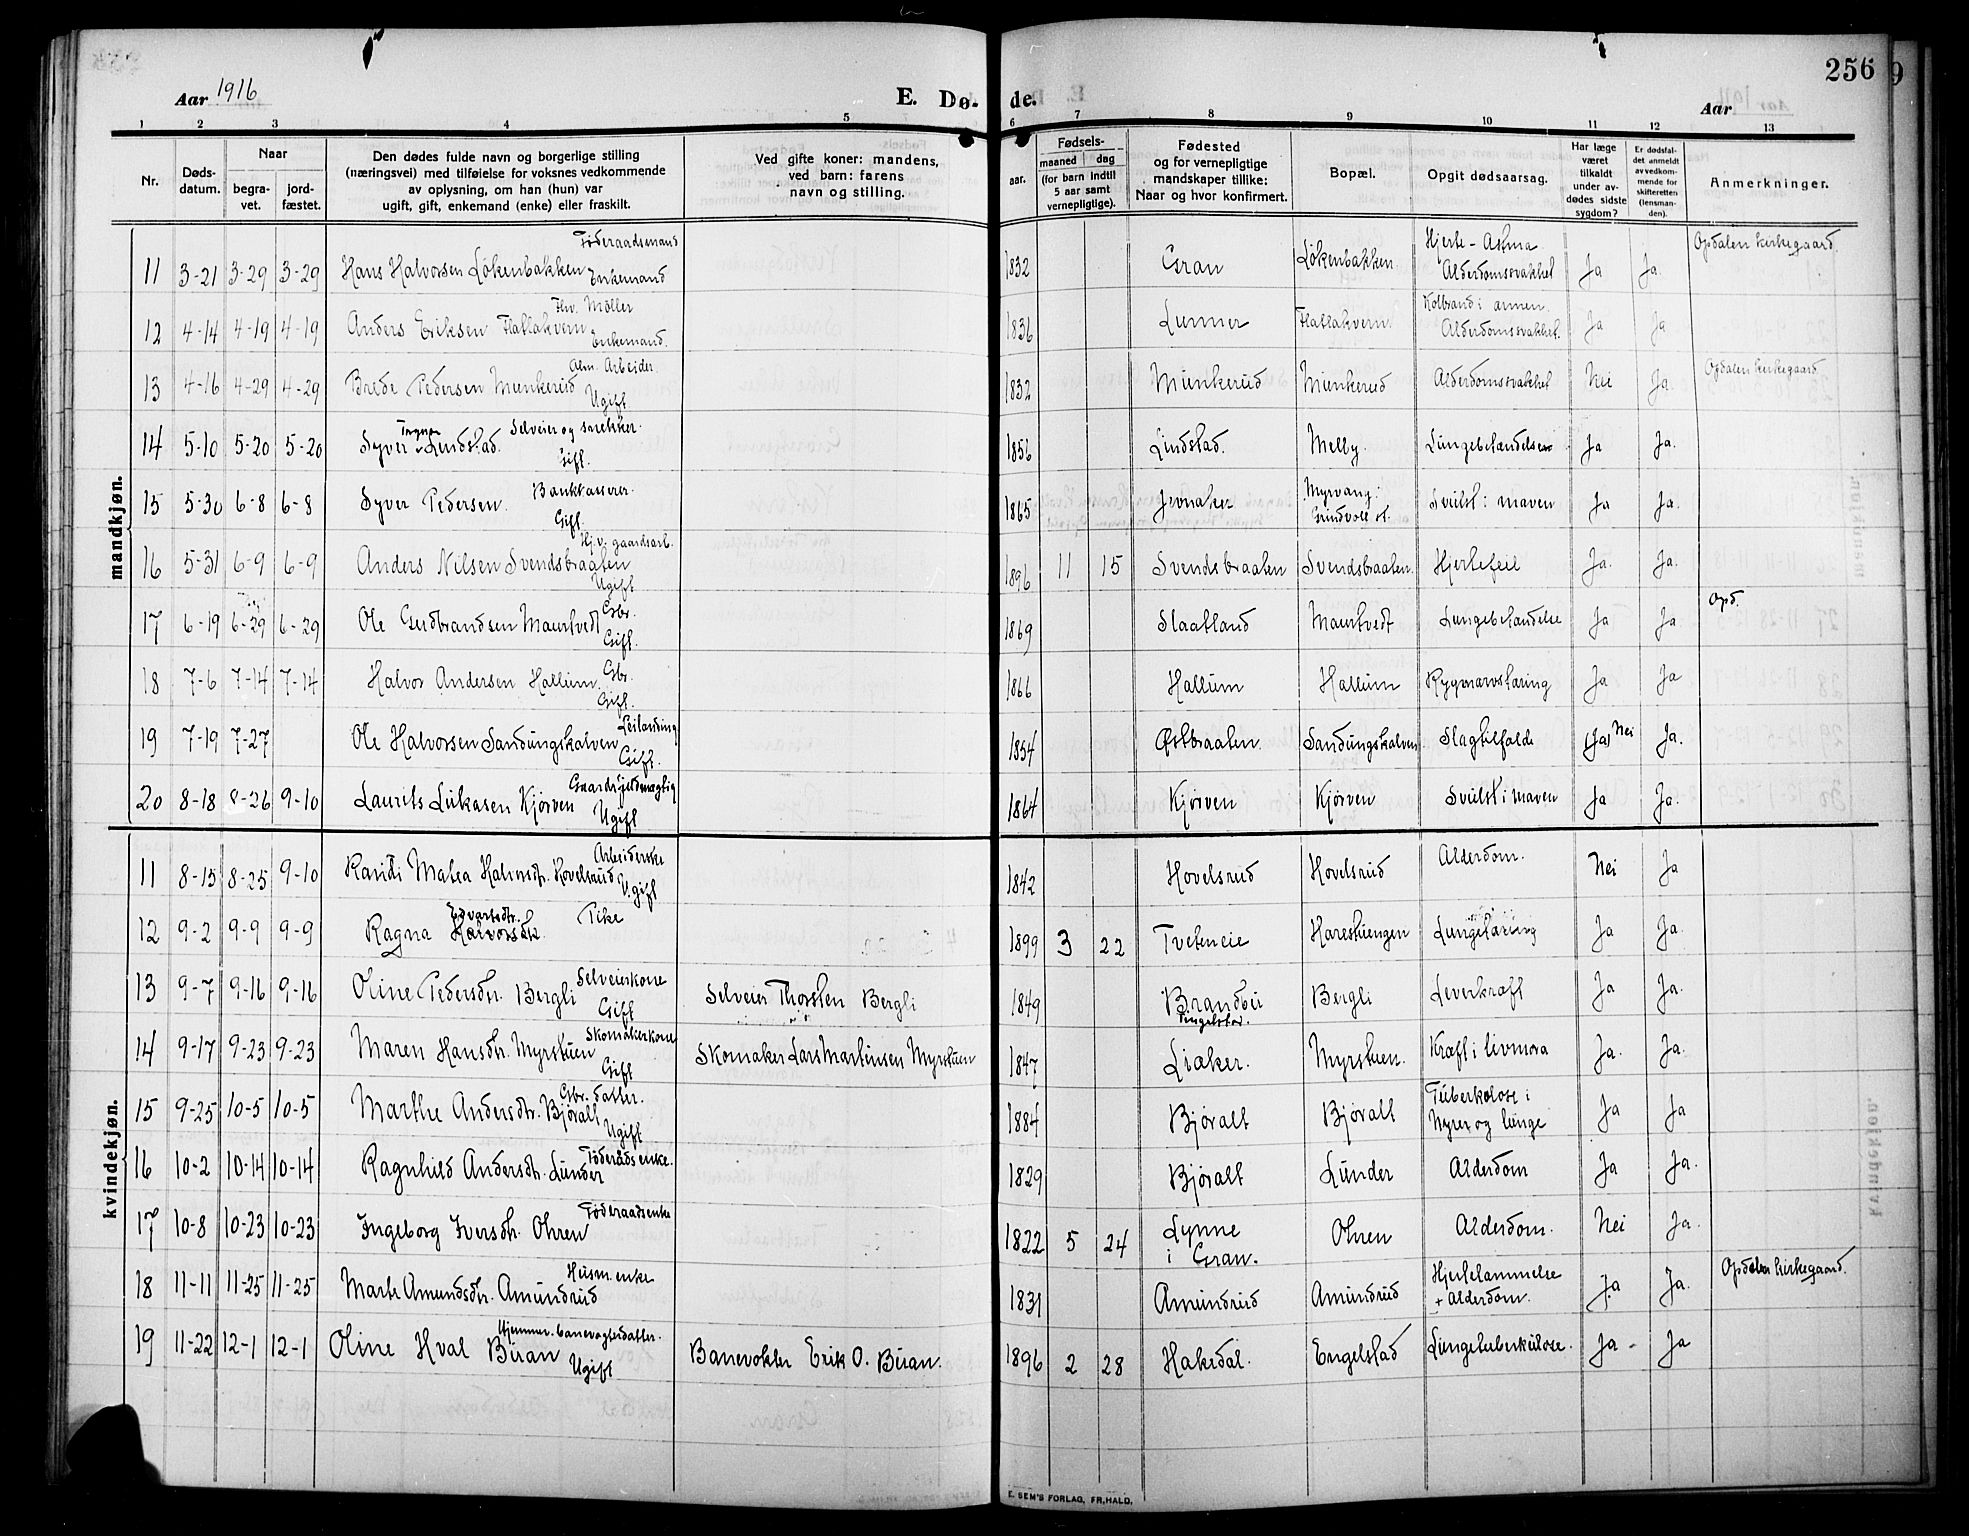 256
9
Aar 1916
E. Dø-
de.
Aar
1 2 3 4 5 6 7 8 9 10 11 12 13
Nr.
Døds-
datum.
Naar
begra-
vet.
jord-
fæstet.
Den dødes fulde navn og borgerlige stilling
(næringsvei) med tilføielse for voksnes vedkommende
av oplysning, om han (hun) var
ugift, gift, enkemand (enke) eller fraskilt.
Ved gifte koner: mandens,
ved barn: farens
navn og stilling.
aar.
Fødsels-
maaned dag
(for barn indtil
5 aar samt
vernepligtige).
Fødested
og for vernepligtige
mandskaper tillike:
Naar og hvor konfirmert.
Bopæl.
Opgit dødsaarsag.
Har læge
været
tilkaldt
under av-
dødes sidste
sygdom?
Er dødsfal-
det anmeldt
av vedkom-
mende for
skifteretten
(lensman-
den).
Anmerkninger.
mandkjøn.
Føderaadsmand
11 3-21 3-29 3-29 Hans Halvorsen Løkenbakken Enkemand 1832 Gran Løkenbakken Hjerte-Astma Alderdomssvakhet Ja Ja. Opdalen kirkegaard.
Fhv. Møller
12 4-14 4-19 4-19 Anders Eriksen Flatlakvern Enkemand. 1836 Lunner Flatlakvern Kolbrand i armen Alderdomssvakhet. Ja Ja
Alm. Arbeider.
13 4-16 4-29 4-29 Brede Pedersen Munkerud Ugift 1832 Munkerud Munkerud Alderdomssvakhet Nei Ja. Opdalen kirkegaard
Selveier og snekker.
14 5-10 5-20 5-20 Syver Lundstad. Gift. 1856 Lundstad. Melby. Lungebetændelse Ja Ja.
Bankkasserer.
15 5-30 6-8 6-8 Syver Pedersen Gift. 1865 Jevnaker Myrvang. Grindvoll st. Svulst i maven Ja Ja.
Hj.v. gaardsarb.
16 5-31 6-9 6-9 Anders Nilsen Svendsbraaten Ugift 1896 11 15 Svendsbraaten Svendsbraaten. Hjertefeil Ja. Ja.
Gbr.
17 6-19 6-29 6-29 Ole Gudbrandsen Maurtvedt Gift. 1869 Slaatland Maurtvedt Lungebetændelse Ja Ja Opd.
Gbr.
18 7-6 7-14 7-14 Halvor Andersen Hallum. Gift. 1866 Hallum Hallum Rygmarvstæring Ja Ja
Leilænding
19 7-19 7-27 Ole Halvorsen Sandungskalven Gift. 1854 Østbraaten. Sandungskalven Slagtilfælde (Ja) Nei Ja.
20 8-18 8-26 9-10 Laurits Lukasen Kjørven Ugift 1864 Kjørven Kjørven Svulst i maven Ja Ja.
kvindekjøn.
Arbeiderske
11 8-15 8-25 9-10 Randi Malea Halvorsdtr. Hovelsrud Ugift 1842 Hovelsrud Hovelsrud Alderdom. Nei Ja
Edvartsdtr. Pike
12 9-2 9-9 9-9 Ragna 1899 3 22 Tveteneie Harestuengen Lungetæring Ja Ja.
Selveierkone
13 9-7 9-16 9-16 Oline Pedersdtr. Bergli Gift Selveier Thorsten Bergli 1849 Brandbu Tingelstad. Bergli Leverkræft Ja Ja.
Skomakerkone
14 9-17 9-23 9-23 Maren Hansdtr. Myrstuen Gift Skomaker Lars Martinsen Myrstuen 1847 Liaker. Myrstuen. Kræft i livmora Ja. Ja.
Gbr. datter.
15 9-25 10-5 10-5 Marthe Andersdtr. Bjøralt Ugift 1884 Bjøralt Bjøralt Tuberkolose i Nyrer og lunge Ja Ja
Føderådsenke.
16 10-2 10-14 10-14 Ragnhild Andersdtr. Lunder 1829 Bjøralt Lunder Alderdom Ja Ja.
Føderaadsenke
17 10-8 10-23 10-23 Ingeborg Iversdtr. Ohren 1822 5 24 Lynne i Gran. Ohren Alderdom. Nei Ja.
Husm.enke
18 11-11 11-25 11-25 Marte Amundsdtr. Amundrud 1831 Amundrud Amundrud Hjertelammelse + Alderdom. Ja Ja. Opdalen kirkegaard.
Hjemmev. banevogterdatter.
19 11-22 12-1 12-1 Oline Hval Buran Ugift Banevokter Erik O. Buran. 1896 2 28 Hakedal. Engelstad Lungetuberkulose. Ja - Ja
E. SEM'S FORLAG, FR.HALD.